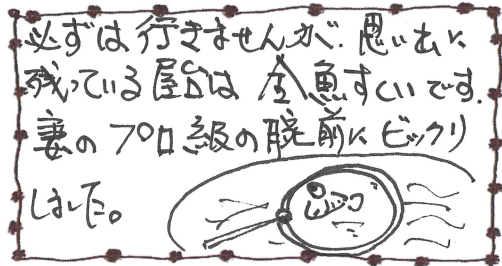 必ずは行きませんが、思い出に
残っている屋台は金魚すくいです。
妻のプロ級の腕前にビックリ
しました。